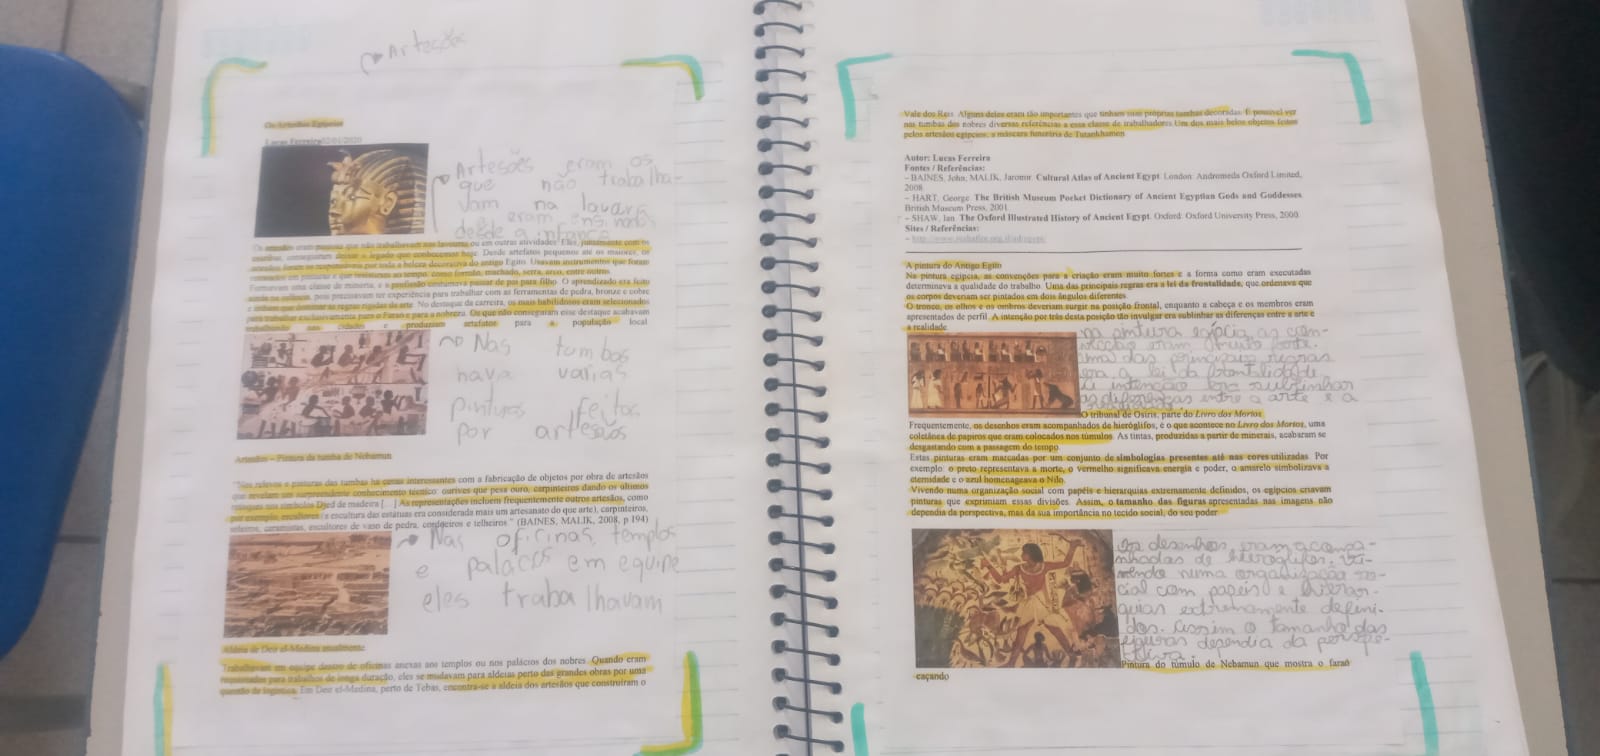 Artesões
Os Artesãos Egípcios
Lucas Ferreira02/01/2020
Artesões eram os
que não trabalha-
vam na lavora
eram ensinados
desde a infance
Os artesãos eram pessoas que não trabalhavam nas lavouras ou em outras atividades. Eles, juntamente com os
escribas, conseguiram deixar o legado que conhecemos hoje. Desde artefatos pequenos até os maiores, os
artesãos foram os responsáveis por toda a beleza decorativa do antigo Egito. Usavam instrumentos que foram
como formão, machado, serra, arco, entre outros.
Formavam uma classe de minoria, e a profissão costumava passar de pai para filho. O aprendizado era feito
ainda na infância, pois precisavam ter experiência para trabalhar com as ferramentas de pedra, bronze e cobre
e tinham que dominar as regras rígidas da arte. No destaque da carreira, os mais habilidosos eram selecionados
para trabalhar exclusivamente para o Faraó e para a nobreza. Os que não conseguiram esse destaque acabavam
trabalhando nas cidades e produziam artefatos para a população local.
Nas tumbas
hava varias
pinturas feitos
por artesões
Artesãos – Pintura da tumba de Nebamun
"Nos relevos e pinturas das tumbas há cenas interessantes com a fabricação de objetos por obra de artesãos
que revelam um surpreendente conhecimento técnico: ourives que pesa ouro, carpinteiros dando os últimos
retoques nos símbolos Djed de madeira [...] As representações incluem frequentemente outros artesãos, como
por exemplo, escultores (a escultura das estátuas era considerada mais um artesanato do que arte), carpinteiros,
seleiros, ceramistas, escultores de vaso de pedra, cordoeiros e telheiros." (BAINES, MALIK, 2008, p 194)
Nas oficinas, templos
e palácos em equipe
eles trabalhavam
Aldeia de Deir el-Medina atualmente.
Trabalhavam em equipe dentro de oficinas anexas aos templos ou nos palácios dos nobres. Quando eram
requisitados para trabalhos de longa duração, eles se mudavam para aldeias perto das grandes obras por uma
questão de logística. Em Deir el-Medina, perto de Tebas, encontra-se a aldeia dos artesãos que construíram o
Vale dos Reis. Alguns deles eram tão importantes que tinham suas próprias tumbas decoradas. É possível ver
nas tumbas dos nobres diversas referências a essa classe de trabalhadores. Um dos mais belos objetos feitos
pelos artesãos egípcios: a máscara funerária de Tutankhamen
Autor: Lucas Ferreira
Fontes / Referências:
– BAINES, John, MALIK, Jaromir. Cultural Atlas of Ancient Egypt. London: Andromeda Oxford Limited,
2008.
– HART, George. The British Museum Pocket Dictionary of Ancient Egyptian Gods and Goddesses
British Museum Press, 2001
– SHAW, Ian. The Oxford Illustrated History of Ancient Egypt. Oxford: Oxford University Press, 2000.
Sites / Referências:
A pintura do Antigo Egito
Na pintura egípcia, as convenções para a criação eram muito fortes e a forma como eram executadas
determinava a qualidade do trabalho. Uma das principais regras era a lei da frontalidade, que ordenava que
os corpos deveriam ser pintados em dois ângulos diferentes.
O tronco, os olhos e os ombros deveriam surgir na posição frontal, enquanto a cabeça e os membros eram
apresentados de perfil. A intenção por trás desta posição tão invulgar era sublinhar as diferenças entre a arte e
a realidade.
na pintura egípcia as con-
vecção eram muito forte.
uma das principais regras
era a lei da frontalidade.
a intenção era sublinhar
as diferentas entre a arte e a
O tribunal de Osíris, parte do Livro dos Mortos.
Frequentemente, os desenhos eram acompanhados de hieróglifos, é o que acontece no Livro dos Mortos, uma
coletânea de papiros que eram colocados nos túmulos. As tintas, produzidas a partir de minerais, acabaram se
desgastando com a passagem do tempo.
Estas pinturas eram marcadas por um conjunto de simbologias presentes até nas cores utilizadas. Por
exemplo: o preto representava a morte, o vermelho significava energia e poder, o amarelo simbolizava a
eternidade e o azul homenageava o Nilo.
Vivendo numa organização social com papéis e hierarquias extremamente definidos, os egípcios criavam
pinturas que exprimiam essas divisões. Assim, o tamanho das figuras apresentadas nas imagens não
dependia da perspectiva, mas da sua importância no tecido social, do seu poder.
os desenhos eram acompa-
nhadas de hieroglifos. vi-
vendo numa organização so-
cial com papéis e hierar-
quias extremamente defini-
dos. assim o tamanho das
figuras dependia da perspe-
ctiva.
Pintura do túmulo de Nebamun que mostra o faraó
caçando